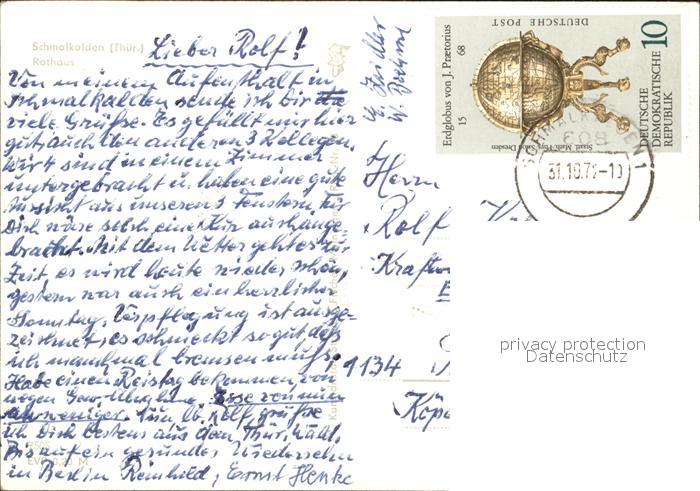 Schmalkalden (Thür.)
Rathaus
Lieber Rolf!
Von meinem Aufenthalt in
Schmalkalden sende ich dir
viele Grüsse. Es gefällt mir hier
gut, auch den anderen 3 Kollegen.
Wir 4 sind in einem Zimmer
untergebracht u. haben eine gute
Aussicht aus unseren 3 Fenstern. Für
Dich wäre solch eine Kur auch ange-
bracht. Mit dem Wetter geht es zur
Zeit es wird heute wieder schön,
gestern war auch ein herrlicher
Sonntag. Verpflegung ist ausge-
zeichnet, es schmeckt so gut, daß
ich manchmal bremsen muß.
Habe einen Reistag bekommen, von
wegen Gew.
weniger. Nun lb. Rolf, grüße
ich Dich bestens aus dem Thür. Wald.
Bis auf ein gesundes Wiedersehn
in Berlin Reinhild, Ernst Henke
EVP 0,20 M
Erdglobus von J. Prætorius
15 68
DEUTSCHE POST
Staatl. Math.-Phys. Salon Dresden
10
DEUTSCHE
DEMOKRATISCHE
REPUBLIK
SCHMALKALDEN 1
608
31.10.72-10
Herrn
Rolf
Kraftw
1134
Köpe
privacy protection
Datenschutz